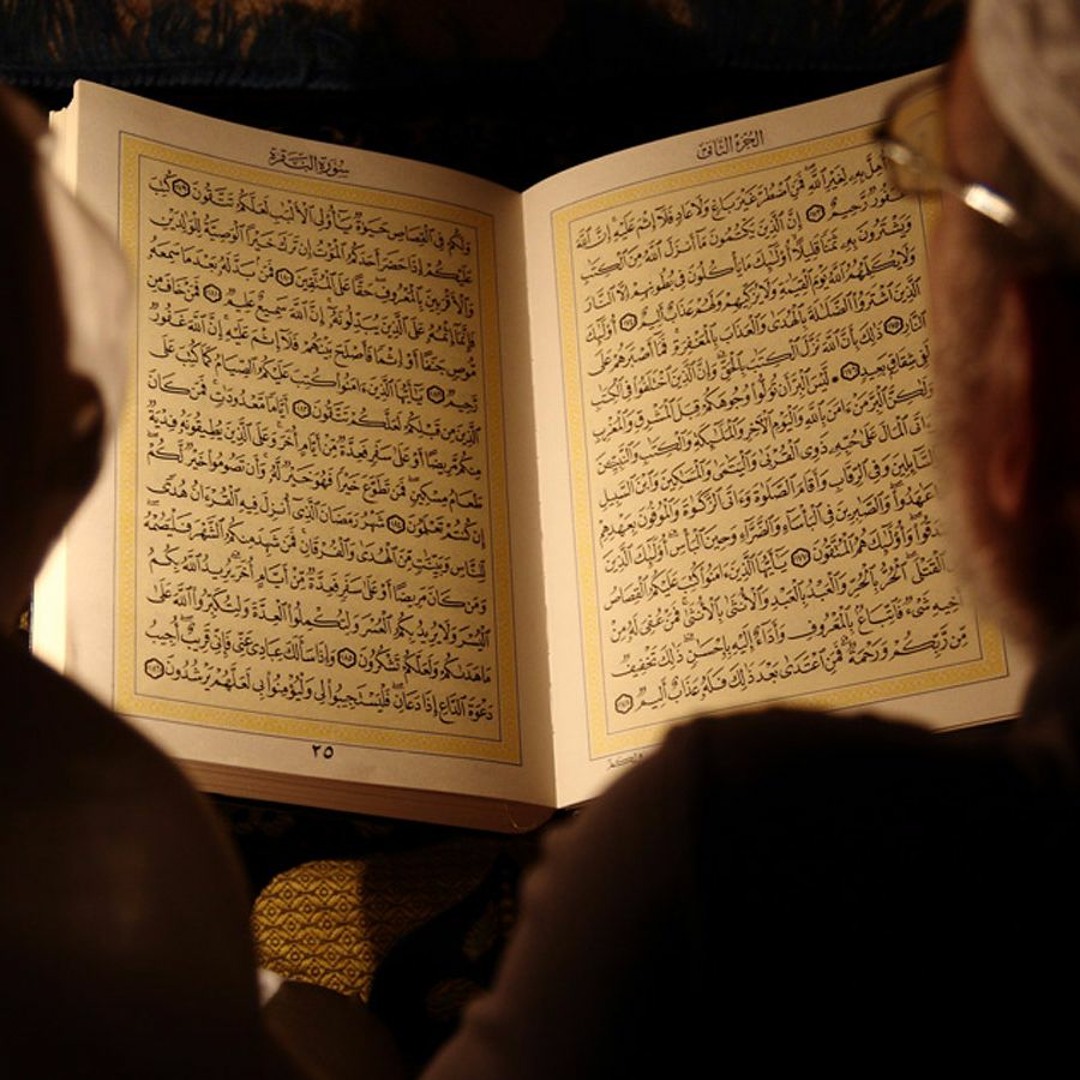 الجُزْءُ الثَّانِي
أُهِلَّ بِهِۦ لِغَيْرِ ٱللَّهِ فَمَنِ ٱضْطُرَّ غَيْرَ بَاغٍ وَلَا عَادٍ فَلَآ إِثْمَ عَلَيْهِ إِنَّ ٱللَّهَ
غَفُورٌ رَّحِيمٌ ۝١٧٣ إِنَّ ٱلَّذِينَ يَكْتُمُونَ مَآ أَنزَلَ ٱللَّهُ مِنَ ٱلْكِتَٰبِ
وَيَشْتَرُونَ بِهِۦ ثَمَنًا قَلِيلًا أُو۟لَٰٓئِكَ مَا يَأْكُلُونَ فِى بُطُونِهِمْ إِلَّا ٱلنَّارَ
وَلَا يُكَلِّمُهُمُ ٱللَّهُ يَوْمَ ٱلْقِيَٰمَةِ وَلَا يُزَكِّيهِمْ وَلَهُمْ عَذَابٌ أَلِيمٌ ۝١٧٤ أُو۟لَٰٓئِكَ
ٱلَّذِينَ ٱشْتَرَوُا۟ ٱلضَّلَٰلَةَ بِٱلْهُدَىٰ وَٱلْعَذَابَ بِٱلْمَغْفِرَةِ فَمَآ أَصْبَرَهُمْ عَلَى
ٱلنَّارِ ۝١٧٥ ذَٰلِكَ بِأَنَّ ٱللَّهَ نَزَّلَ ٱلْكِتَٰبَ بِٱلْحَقِّ وَإِنَّ ٱلَّذِينَ ٱخْتَلَفُوا۟ فِى ٱلْكِتَٰبِ
لَفِى شِقَاقٍۭ بَعِيدٍ ۝١٧٦ لَّيْسَ ٱلْبِرَّ أَن تُوَلُّوا۟ وُجُوهَكُمْ قِبَلَ ٱلْمَشْرِقِ وَٱلْمَغْرِبِ
وَلَٰكِنَّ ٱلْبِرَّ مَنْ ءَامَنَ بِٱللَّهِ وَٱلْيَوْمِ ٱلْءَاخِرِ وَٱلْمَلَٰٓئِكَةِ وَٱلْكِتَٰبِ وَٱلنَّبِيِّۦنَ
ٱلْمَالَ عَلَىٰ حُبِّهِۦ ذَوِى ٱلْقُرْبَىٰ وَٱلْيَتَٰمَىٰ وَٱلْمَسَٰكِينَ وَٱبْنَ ٱلسَّبِيلِ
وَفِى ٱلرِّقَابِ وَأَقَامَ ٱلصَّلَوٰةَ وَءَاتَى ٱلزَّكَوٰةَ وَٱلْمُوفُونَ بِعَهْدِهِمْ
عَٰهَدُوا۟ وَٱلصَّٰبِرِينَ فِى ٱلْبَأْسَآءِ وَٱلضَّرَّآءِ وَحِينَ ٱلْبَأْسِ أُو۟لَٰٓئِكَ ٱلَّذِينَ
وَأُو۟لَٰٓئِكَ هُمُ ٱلْمُتَّقُونَ ۝١٧٧ يَٰٓأَيُّهَا ٱلَّذِينَ ءَامَنُوا۟ كُتِبَ عَلَيْكُمُ ٱلْقِصَاصُ
ٱلْقَتْلَى ٱلْحُرُّ بِٱلْحُرِّ وَٱلْعَبْدُ بِٱلْعَبْدِ وَٱلْأُنثَىٰ بِٱلْأُنثَىٰ فَمَنْ عُفِىَ لَهُۥ مِنْ
أَخِيهِ شَىْءٌ فَٱتِّبَاعٌۢ بِٱلْمَعْرُوفِ وَأَدَآءٌ إِلَيْهِ بِإِحْسَٰنٍ ذَٰلِكَ تَخْفِيفٌ
مِّن رَّبِّكُمْ وَرَحْمَةٌ فَمَنِ ٱعْتَدَىٰ بَعْدَ ذَٰلِكَ فَلَهُۥ عَذَابٌ أَلِيمٌ ۝١٧٨
سُورَةُ البَقَرَةِ
وَلَكُمْ فِى ٱلْقِصَاصِ حَيَوٰةٌ يَٰٓأُو۟لِى ٱلْأَلْبَٰبِ لَعَلَّكُمْ تَتَّقُونَ ۝١٧٩ كُتِبَ
عَلَيْكُمْ إِذَا حَضَرَ أَحَدَكُمُ ٱلْمَوْتُ إِن تَرَكَ خَيْرًا ٱلْوَصِيَّةُ لِلْوَٰلِدَيْنِ
وَٱلْأَقْرَبِينَ بِٱلْمَعْرُوفِ حَقًّا عَلَى ٱلْمُتَّقِينَ ۝١٨٠ فَمَنۢ بَدَّلَهُۥ بَعْدَ مَا سَمِعَهُۥ
فَإِنَّمَآ إِثْمُهُۥ عَلَى ٱلَّذِينَ يُبَدِّلُونَهُۥٓ إِنَّ ٱللَّهَ سَمِيعٌ عَلِيمٌ ۝١٨١ فَمَنْ خَافَ مِن
مُّوصٍ جَنَفًا أَوْ إِثْمًا فَأَصْلَحَ بَيْنَهُمْ فَلَآ إِثْمَ عَلَيْهِ إِنَّ ٱللَّهَ غَفُورٌ
رَّحِيمٌ ۝١٨٢ يَٰٓأَيُّهَا ٱلَّذِينَ ءَامَنُوا۟ كُتِبَ عَلَيْكُمُ ٱلصِّيَامُ كَمَا كُتِبَ عَلَى
ٱلَّذِينَ مِن قَبْلِكُمْ لَعَلَّكُمْ تَتَّقُونَ ۝١٨٣ أَيَّامًا مَّعْدُودَٰتٍ فَمَن كَانَ
مِنكُم مَّرِيضًا أَوْ عَلَىٰ سَفَرٍ فَعِدَّةٌ مِّنْ أَيَّامٍ أُخَرَ وَعَلَى ٱلَّذِينَ يُطِيقُونَهُۥ فِدْيَةٌ
طَعَامُ مِسْكِينٍ فَمَن تَطَوَّعَ خَيْرًا فَهُوَ خَيْرٌ لَّهُۥ وَأَن تَصُومُوا۟ خَيْرٌ لَّكُمْ
إِن كُنتُمْ تَعْلَمُونَ ۝١٨٤ شَهْرُ رَمَضَانَ ٱلَّذِىٓ أُنزِلَ فِيهِ ٱلْقُرْءَانُ هُدًى
لِّلنَّاسِ وَبَيِّنَٰتٍ مِّنَ ٱلْهُدَىٰ وَٱلْفُرْقَانِ فَمَن شَهِدَ مِنكُمُ ٱلشَّهْرَ فَلْيَصُمْهُ
وَمَن كَانَ مَرِيضًا أَوْ عَلَىٰ سَفَرٍ فَعِدَّةٌ مِّنْ أَيَّامٍ أُخَرَ يُرِيدُ ٱللَّهُ بِكُمُ
ٱلْيُسْرَ وَلَا يُرِيدُ بِكُمُ ٱلْعُسْرَ وَلِتُكْمِلُوا۟ ٱلْعِدَّةَ وَلِتُكَبِّرُوا۟ ٱللَّهَ عَلَىٰ
مَا هَدَىٰكُمْ وَلَعَلَّكُمْ تَشْكُرُونَ ۝١٨٥ وَإِذَا سَأَلَكَ عِبَادِى عَنِّى فَإِنِّى قَرِيبٌ أُجِيبُ
دَعْوَةَ ٱلدَّاعِ إِذَا دَعَانِ فَلْيَسْتَجِيبُوا۟ لِى وَلْيُؤْمِنُوا۟ بِى لَعَلَّهُمْ يَرْشُدُونَ ۝١٨٦
٢٥